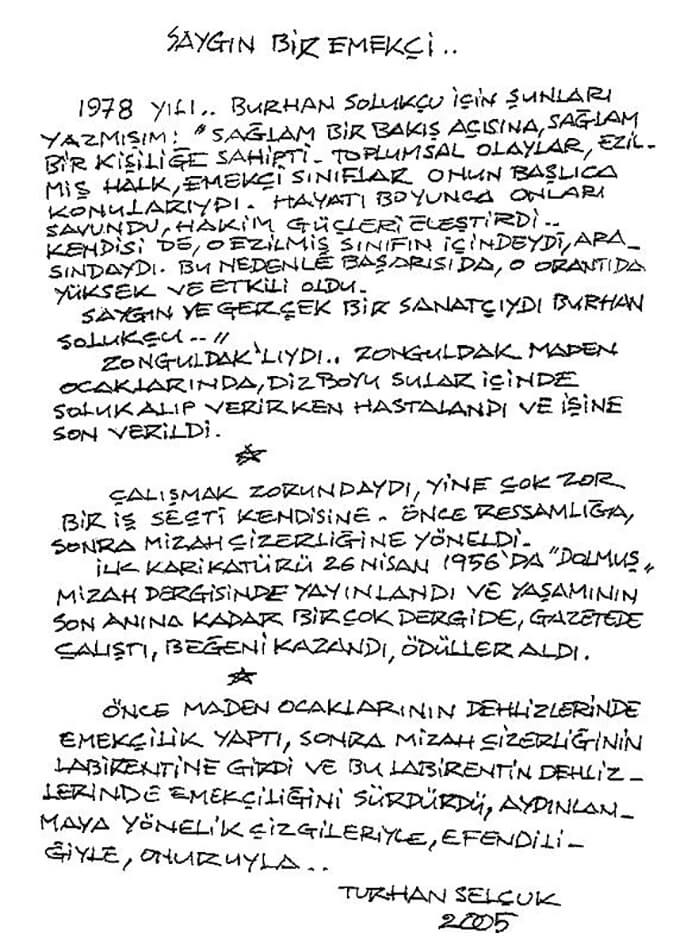 SAYGIN BİR EMEKÇİ..
1978 YILI.. BURHAN SOLUKÇU İÇİN ŞUNLARI
YAZMIŞIM: "SAĞLAM BİR BAKIŞ AÇISINA, SAĞLAM
BİR KİŞİLİĞE SAHİPTİ- TOPLUMSAL OLAYLAR, EZİL-
MİŞ HALK, EMEKÇİ SINIFLAR ONUN BAŞLICA
KONULARIYDI. HAYATI BOYUNCA ONLARI
SAVUNDU, HAKİM GÜÇLERİ ELEŞTİRDİ..
KENDİSİ DE, O EZİLMİŞ SINIFIN İÇİNDEYDİ, ARA-
SINDAYDI. BU NEDENLE BAŞARISI DA, O ORANTIDA
YÜKSEK VE ETKİLİ OLDU-
SAYGIN VE GERÇEK BİR SANATÇIYDI BURHAN
SOLUKÇU.."
ZONGULDAK'LIYDI.. ZONGULDAK MADEN
OCAKLARINDA, DİZBOYU SULAR İÇİNDE
SOLUK ALIP VERİRKEN HASTALANDI VE İŞİNE
SON VERİLDİ.
☆
ÇALIŞMAK ZORUNDAYDI, YİNE ÇOK ZOR
BİR İŞ SEÇTİ KENDİSİNE. ÖNCE RESSAMLIĞA,
SONRA MİZAH ÇİZERLİĞİNE YÖNELDİ.
İLK KARİKATÜRÜ 26 NİSAN 1956'DA "DOLMUŞ"
MİZAH DERGİSİNDE YAYINLANDI VE YAŞAMININ
SON ANINA KADAR BİRÇOK DERGİDE, GAZETEDE
ÇALIŞTI, BEĞENİ KAZANDI, ÖDÜLLER ALDI.
☆
ÖNCE MADEN OCAKLARININ DEHLİZLERİNDE
EMEKÇİLİK YAPTI, SONRA MİZAH ÇİZERLİĞİNİN
LABİRENTİNE GİRDİ VE BU LABİRENTİN DEHLİZ-
LERİNDE EMEKÇİLİĞİNİ SÜRDÜRDÜ, AYDINLAN-
MAYA YÖNELİK ÇİZGİLERİYLE, EFENDİLİ-
ĞİYLE, ONURUYLA..
TURHAN SELÇUK
2005